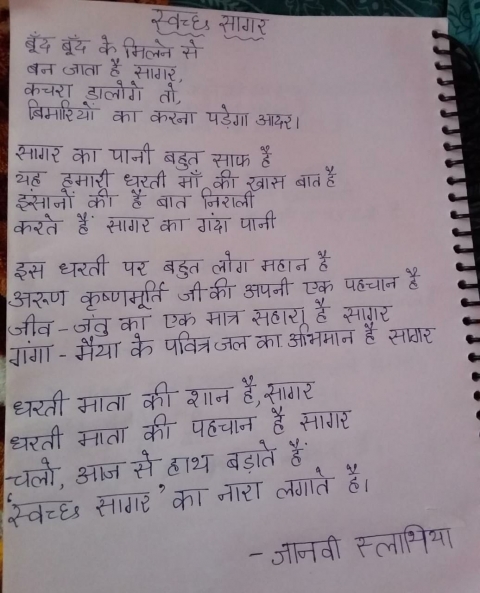 स्वच्छ सागर
बूँद बूँद के मिलने से
बन जाता है सागर,
कचरा डालोगे तो,
बिमारियों का करना पड़ेगा आदर।
सागर का पानी बहुत साफ है
यह हमारी धरती माँ की खास बात है
इंसानों की है बात निराली
करते हैं सागर का गंदा पानी
इस धरती पर बहुत लोग महान है
अरूण कृष्णमूर्ति जी की अपनी एक पहचान है
जीव - जंतु का एक मात्र सहारा है सागर
गंगा - मैया के पवित्र जल का अभिमान है सागर
धरती माता की शान है, सागर
धरती माता की पहचान है सागर
चलो, आज से हाथ बड़ाते हैं
'स्वच्छ सागर' का नारा लगाते है।
- जानवी स्लाथिया